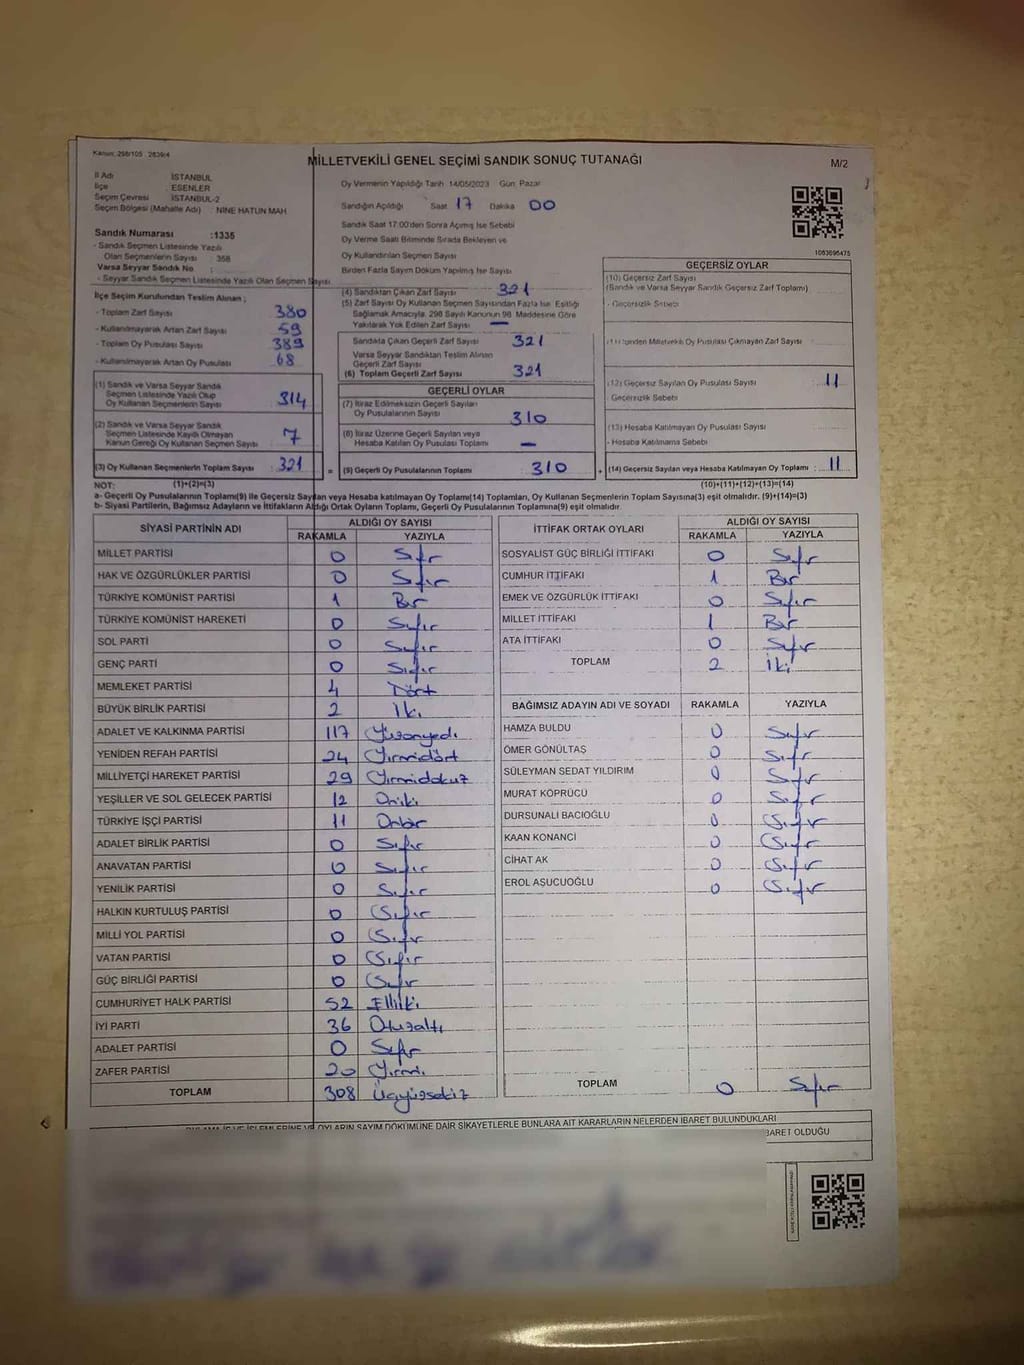 Kanun: 298/105 , 2839/4
MİLLETVEKİLİ GENEL SEÇİMİ SANDIK SONUÇ TUTANAĞI
M/2
İl Adı : İSTANBUL
İlçe : ESENLER
Seçim Çevresi : İSTANBUL-2
Seçim Bölgesi (Mahalle Adı) : NİNE HATUN MAH
Oy Vermenin Yapıldığı Tarih 14/05/2023 Gün: Pazar
Sandığın Açıldığı Saat 17 Dakika 00
Sandık Saat 17:00'den Sonra Açılmış İse Sebebi
Oy Verme Saati Bitiminde Sırada Bekleyen ve
Oy Kullandırılan Seçmen Sayısı
Birden Fazla Sayım Döküm Yapılmış İse Sayısı
1083696475
Sandık Numarası :1335
- Sandık Seçmen Listesinde Yazılı
Olan Seçmenlerin Sayısı : 358
Varsa Seyyar Sandık No :
- Seyyar Sandık Seçmen Listesinde Yazılı Olan Seçmen Sayısı
İlçe Seçim Kurulundan Teslim Alınan ;
- Toplam Zarf Sayısı : 380
- Kullanılmayarak Artan Zarf Sayısı : 59
- Toplam Oy Pusulası Sayısı : 389
- Kullanılmayarak Artan Oy Pusulası : 68
(1) Sandık ve Varsa Seyyar Sandık
Seçmen Listesinde Yazılı Olup
Oy Kullanan Seçmenlerin Sayısı : 314
(2) Sandık ve Varsa Seyyar Sandık
Seçmen Listesinde Kayıtlı Olmayan
Kanun Gereği Oy Kullanan Seçmen Sayısı : 7
(3) Oy Kullanan Seçmenlerin Toplam Sayısı : 321
(4) Sandıktan Çıkan Zarf Sayısı : 321
(5) Zarf Sayısı Oy Kullanan Seçmen Sayısından Fazla İse, Eşitliği
Sağlamak Amacıyla, 298 Sayılı Kanunun 98. Maddesine Göre
Yakılarak Yok Edilen Zarf Sayısı : —
Sandıkta Çıkan Geçerli Zarf Sayısı : 321
Varsa Seyyar Sandıktan Teslim Alınan
Geçerli Zarf Sayısı
(6) Toplam Geçerli Zarf Sayısı : 321
GEÇERLİ OYLAR
(7) İtiraz Edilmeksizin Geçerli Sayılan
Oy Pusulalarının Sayısı : 310
(8) İtiraz Üzerine Geçerli Sayılan veya
Hesaba Katılan Oy Pusulası Toplamı : —
= (9) Geçerli Oy Pusulalarının Toplamı : 310
GEÇERSİZ OYLAR
(10) Geçersiz Zarf Sayısı
(Sandık ve Varsa Seyyar Sandık Geçersiz Zarf Toplamı)
- Geçersizlik Sebebi
(12) Geçersiz Sayılan Oy Pusulası Sayısı : 11
Geçersizlik Sebebi
(13) Hesaba Katılmayan Oy Pusulası Sayısı
- Hesaba Katılmama Sebebi
+ (14) Geçersiz Sayılan veya Hesaba Katılmayan Oy Toplamı : 11
NOT: (1)+(2)=(3) (10)+(11)+(12)+(13)=(14)
a- Geçerli Oy Pusulalarının Toplamı(9) ile Geçersiz Sayılan veya Hesaba katılmayan Oy Toplamı(14) Toplamları, Oy Kullanan Seçmenlerin Toplam Sayısına(3) eşit olmalıdır. (9)+(14)=(3)
b- Siyasi Partilerin, Bağımsız Adayların ve İttifakların Aldığı Ortak Oyların Toplamı, Geçerli Oy Pusulalarının Toplamına(9) eşit olmalıdır
SİYASİ PARTİNİN ADI ALDIĞI OY SAYISI
RAKAMLA YAZIYLA
MİLLET PARTİSİ 0 Sıfır
HAK VE ÖZGÜRLÜKLER PARTİSİ 0 Sıfır
TÜRKİYE KOMÜNİST PARTİSİ 1 Bir
TÜRKİYE KOMÜNİST HAREKETİ 0 Sıfır
SOL PARTİ 0 Sıfır
GENÇ PARTİ 0 Sıfır
MEMLEKET PARTİSİ 4 Dört
BÜYÜK BİRLİK PARTİSİ 2 İki
ADALET VE KALKINMA PARTİSİ 117 Yüzonyedi
YENİDEN REFAH PARTİSİ 24 Yirmidört
MİLLİYETÇİ HAREKET PARTİSİ 29 Yirmidokuz
YEŞİLLER VE SOL GELECEK PARTİSİ 12 Oniki
TÜRKİYE İŞÇİ PARTİSİ 11 Onbir
ADALET BİRLİK PARTİSİ 0 Sıfır
ANAVATAN PARTİSİ 0 Sıfır
YENİLİK PARTİSİ 0 Sıfır
HALKIN KURTULUŞ PARTİSİ 0 Sıfır
MİLLİ YOL PARTİSİ 0 Sıfır
VATAN PARTİSİ 0 Sıfır
GÜÇ BİRLİĞİ PARTİSİ 0 Sıfır
CUMHURİYET HALK PARTİSİ 52 Elliiki
İYİ PARTİ 36 Otuzaltı
ADALET PARTİSİ 0 Sıfır
ZAFER PARTİSİ 20 Yirmi
TOPLAM 308 Üçyüzsekiz
İTTİFAK ORTAK OYLARI ALDIĞI OY SAYISI
RAKAMLA YAZIYLA
SOSYALİST GÜÇ BİRLİĞİ İTTİFAKI 0 Sıfır
CUMHUR İTTİFAKI 1 Bir
EMEK VE ÖZGÜRLÜK İTTİFAKI 0 Sıfır
MİLLET İTTİFAKI 1 Bir
ATA İTTİFAKI 0 Sıfır
TOPLAM 2 İki
BAĞIMSIZ ADAYIN ADI VE SOYADI RAKAMLA YAZIYLA
HAMZA BULDU 0 Sıfır
ÖMER GÖNÜLTAŞ 0 Sıfır
SÜLEYMAN SEDAT YILDIRIM 0 Sıfır
MURAT KÖPRÜCÜ 0 Sıfır
DURSUNALİ BACIOĞLU 0 Sıfır
KAAN KONANCİ 0 Sıfır
CİHAT AK 0 Sıfır
EROL AŞUCUOĞLU 0 Sıfır
TOPLAM 0 Sıfır
OYLARIN SAYIM DÖKÜMÜNE DAİR ŞİKAYETLERLE BUNLARA AİT KARARLARIN NELERDEN İBARET BULUNDUKLARI
İBARET OLDUĞU